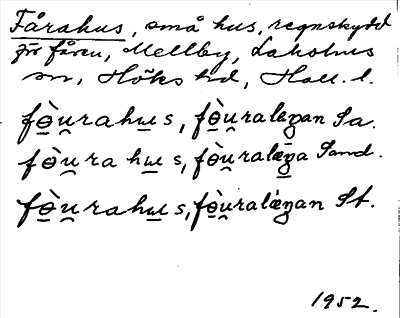 Fårahus, små hus, regnskydd
för fåren, Mellby, Laholms
sn, Höks hd, Hall. l.
fo̱̊̀u̯rahu̱s, fo̱̊̀u̯ralägan Sa.
fo̱̊̀u̯rahu̱s, fo̱̊̀u̯raläga Sand.
fo̱̊̀u̯rahu̱s, fo̱̊̀u̯ralägan St.
1952.